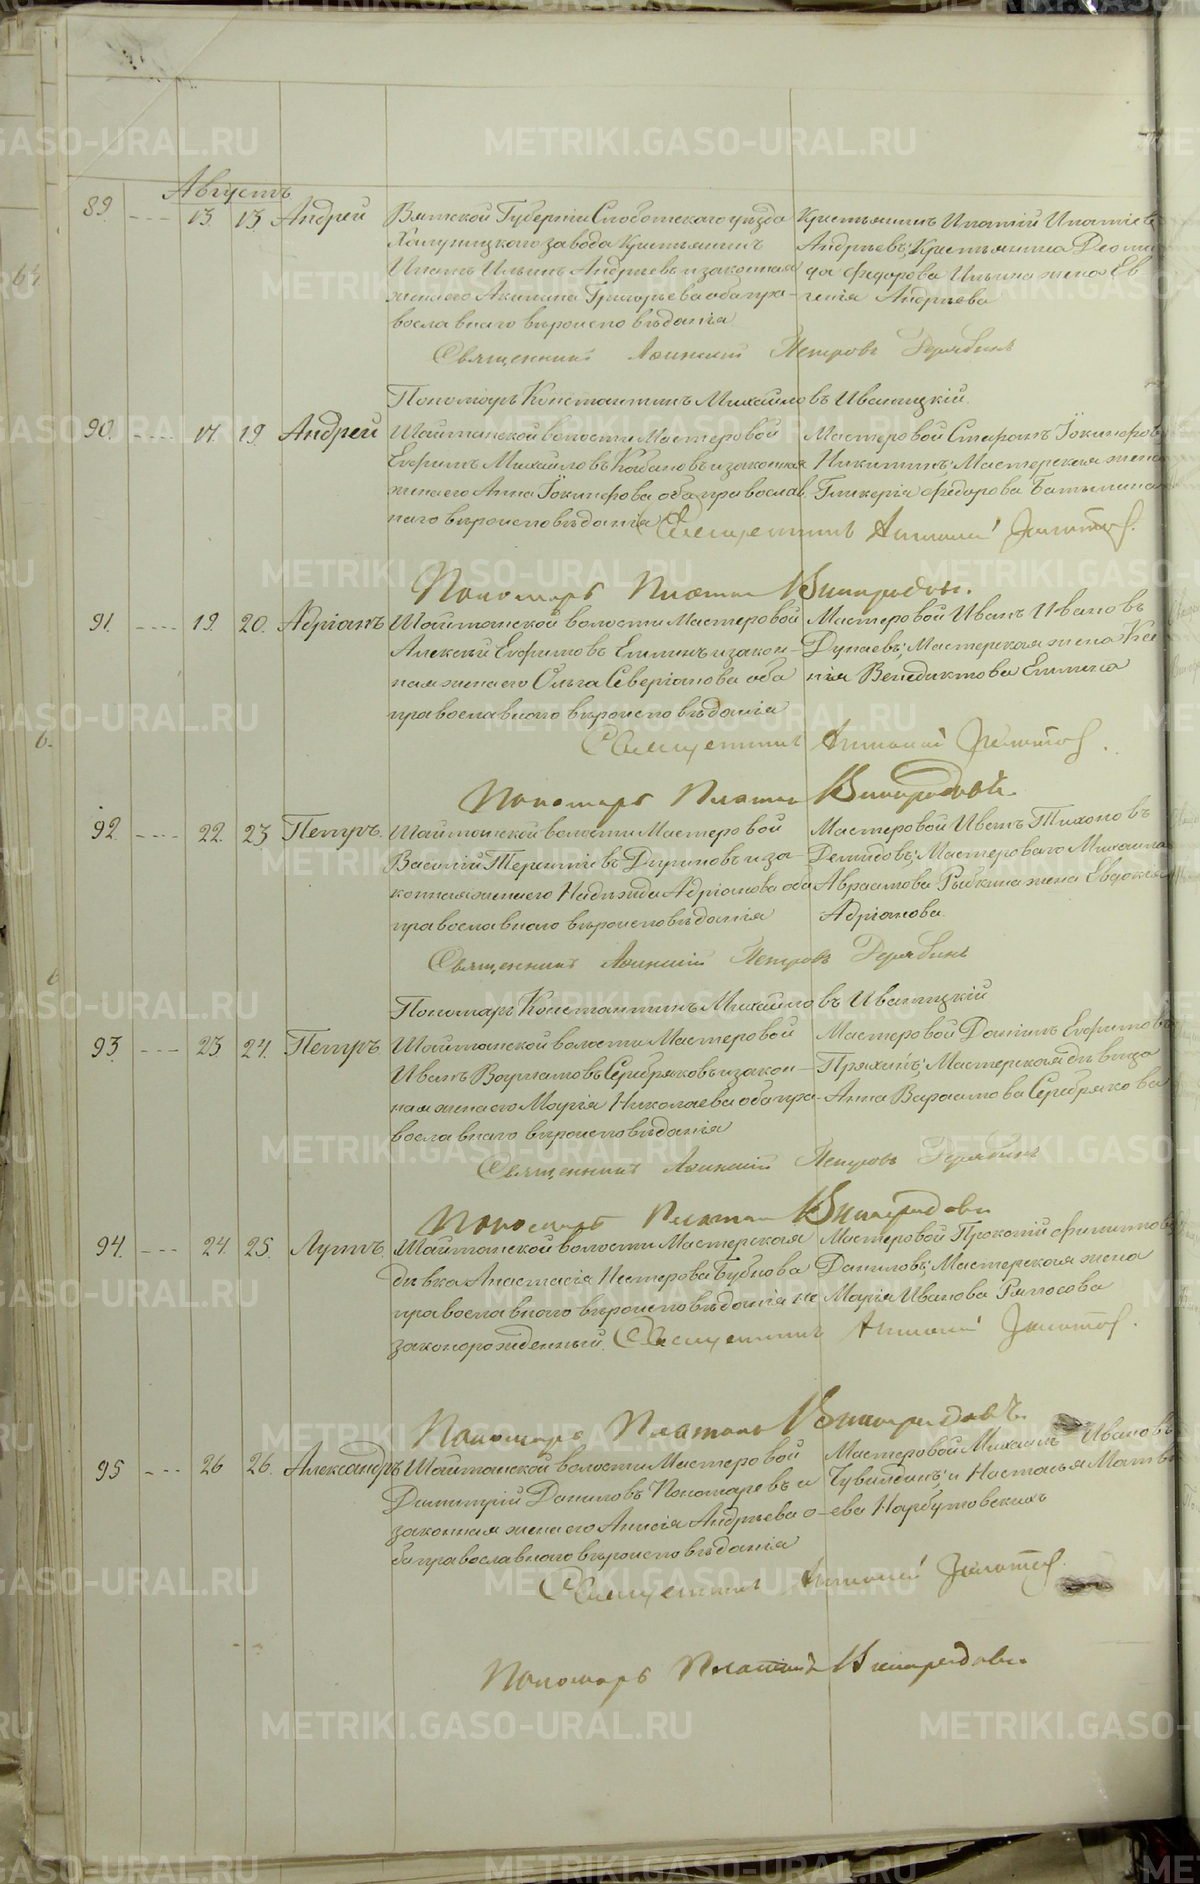 Августъ
89. 13. 13 Андрей
Вятской Губерніи Слободскаго уѣзда
Холуницкаго завода Крестьянинъ
Ильинъ Андреевъ и законная
жена его Акилина Григорьева оба пра-
вославнаго вѣроисповѣданія
Крестьянинъ Ипатій
Андреевъ; Крестьянина
Федорова Ильина жена Ев
генія Андреева
Священникъ Петровъ Дерябинъ
Пономарь Константинъ Михайловъ Иваницкій.
90. 17. 19. Андрей
Шайтанской волости Мастеровой
Ефимъ Михайловъ Кабановъ и законная
жена его Анна Іокинфова оба православ
наго вѣроисповѣданія
Мастеровой Стафанъ Іокинфовъ
Никитинъ; Мастерская жена
Гликерія Федорова
Священникъ Антоній Золотов.
Пономарь Платон Виноградовъ.
91. 19. 20. Адріанъ
Шайтанской волости Мастеровой
Алексѣй Ефимовъ Еминъ и закон-
ная жена его Ольга Северіанова оба
православнаго вѣроисповѣданія
Мастеровой Иванъ Ивановъ
Дунаевъ; Мастерская жена Ксе
нія Венедиктова Емина
Священникъ Антоній Золотов.
Пономарь Платон Виноградовъ.
92 22. 23 Петръ.
Шайтанской волости Мастеровой
Василій Терентіевъ и за-
конная жена его Надежда Адріанова оба
православнаго вѣроисповѣданія
Мастеровой Иванъ Тихоновъ
Демидовъ; Мастероваго Михаила
Авраамова Рыбкина жена Евдокія
Адріанова.
Священникъ Петровъ Дерябинъ
Пономарь Константинъ Михайловъ Иваницкій
93. 23 24. Петръ
Шайтанской волости Мастеровой
Иванъ Варламовъ Серебряковъ и закон-
ная жена его Марія Николаева оба пра-
вославнаго вѣроисповѣданія
Мастеровой Даніилъ Ефимовъ
Пряхинъ; Мастерская дѣвица
Анна Варламова Серебрякова
Священникъ Петровъ Дерябинъ
Пономарь Платон Виноградовъ
94. 24. 25. Луппъ.
Шайтанской волости Мастерская
дѣвка Анастасія Нестерова Бубнова
православнаго вѣроисповѣданія не
законорожденный.
Мастеровой Прокопій Филиппов
Даниловъ; Мастерская жена
Марія Иванова Ряпосова
Священникъ Антоній Золотов.
Пономарь Платонъ Виноградовъ.
95 26 26. Александръ
Шайтанской волости Мастеровой
Димитрій Даниловъ Пономаревъ и
законная жена его Анисія Андреева о-
ба православнаго вѣроисповѣданія
Мастеровой Михаилъ Ивановъ
и Настасья Матвѣ
ева Нарбутовскихъ
Священникъ Антоній Золотов.
Пономарь Платонъ Виноградовъ.
METRIKI.GASO-URAL.RU